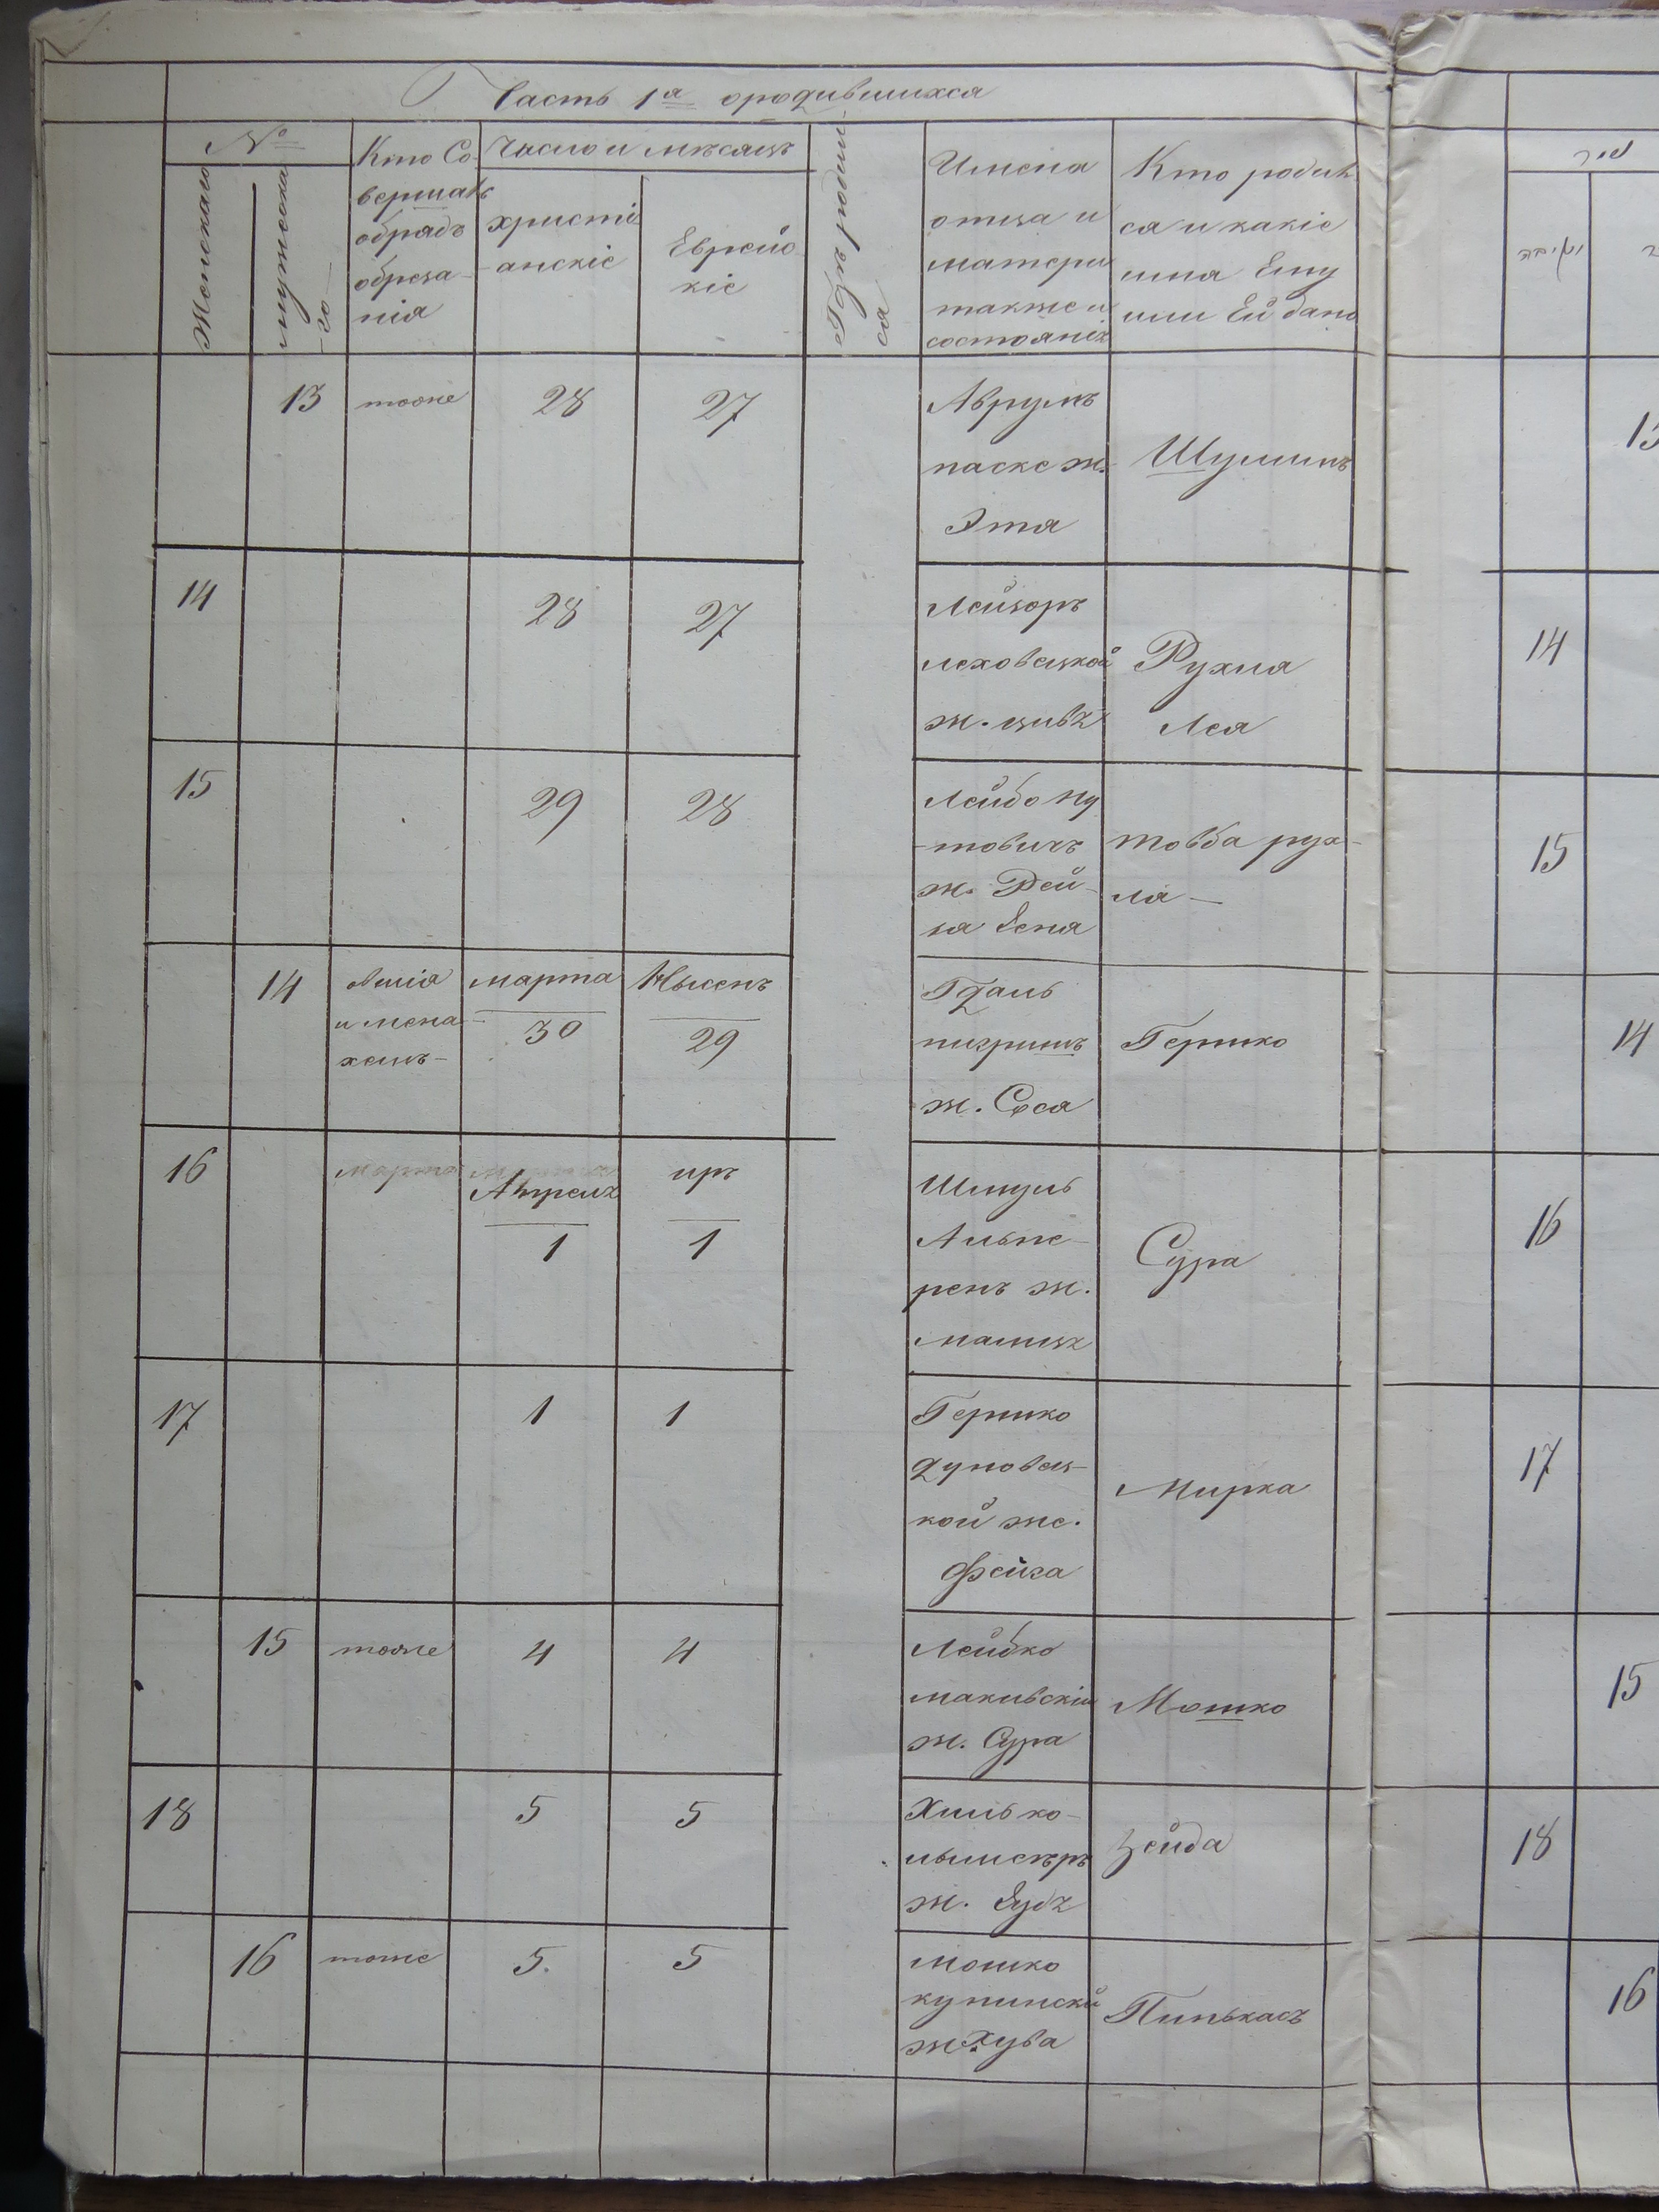 Часть 1я ородившихся
№
Женскаго
мужеска
го
Кто Со-
вершалъ
обрядъ
обреза-
нія
Число и мѣсяцъ
христі
-анскіе
Еврейс
кіе
Гдѣ родит-
ся
Имена
отца и
матери
также и
состоянія
Кто родил
ся и какіе
имя Ему
или Ей дано
13 тоже 28 27
Аврумъ
паске ж.
Эта
Шулимъ
14 28 27
Лейзоръ
леховецкой
ж. цивя
Рухля
Лея
15 29 28
Лейбо ну
-товичъ
ж. Рей-
за Бена
товба рух-
ля —
14
и мена-
хемъ-
марта
30
Нысенъ
29
Гдаль
пигримъ
ж. Сося
Гершко
16 марта
Апреля
1
иръ
1
Шмуль
Альпе-
ренъ ж.
малця
Сура
17 1 1
Гершко
дуновец-
кой же.
Фейга
Мирка
15 тоже 4 4
Лейбко
макивскій
ж. Сура
Мошко
18 5 5
Хиль ко-
ж.
Зейда
16 тоже 5. 5
мошко
купински
ж. Хува
Пинькасъ
13
14
15
14
16
17
15
18
16